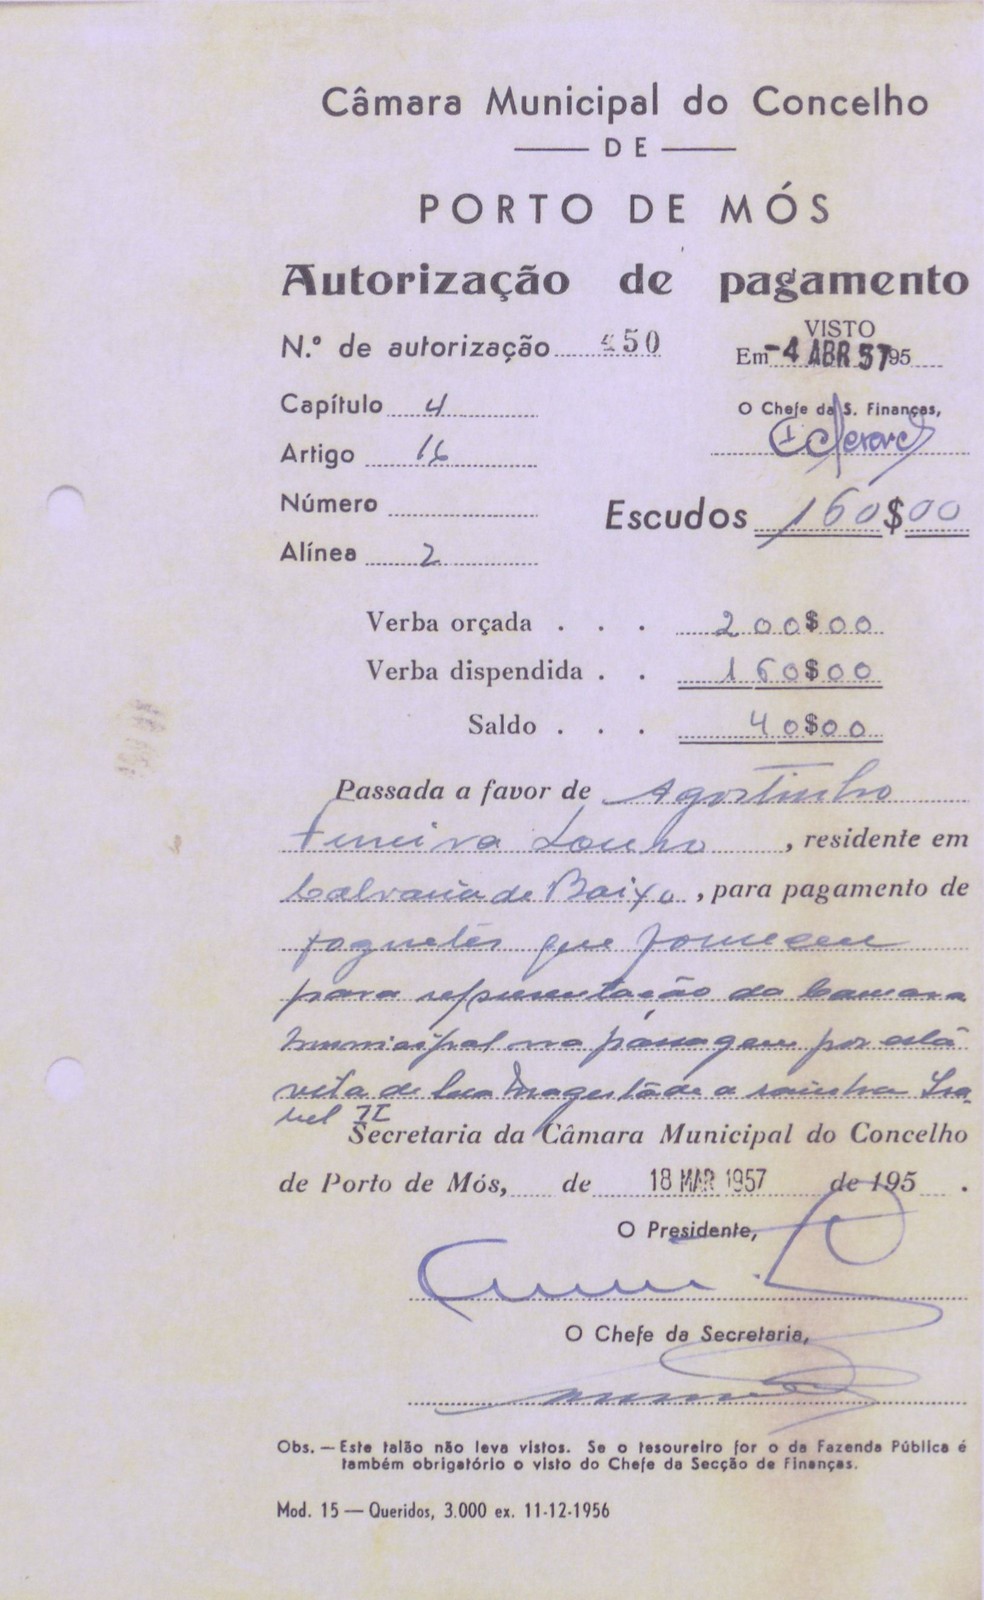 Câmara Municipal do Concelho
DE
PORTO DE MÓS
Autorização de pagamento
N.º de autorização 450
VISTO
Em -4 ABR 57 195
Capítulo 4
O Chefe da S. Finanças,
Artigo 16
Número
Escudos 160$00
Alínea 2
Verba orçada . . . 200$00
Verba dispendida . . 160$00
Saldo . . . 40$00
Passada a favor de Agostinho
Ferreira , residente em
Calvaria de Baixo , para pagamento de
foguetes que forneceu
para representação da Camara
Municipal na passagem por esta
vila de Sua Magestade a rainha Isa
bel II
Secretaria da Câmara Municipal do Concelho
de Porto de Mós, de 18 MAR 1957 de 195 .
O Presidente,
O Chefe da Secretaria,
Obs. — Este talão não leva vistos. Se o tesoureiro for o da Fazenda Pública é
também obrigatório o visto do Chefe da Secção de Finanças.
Mod. 15 — Queridos, 3.000 ex. 11-12-1956